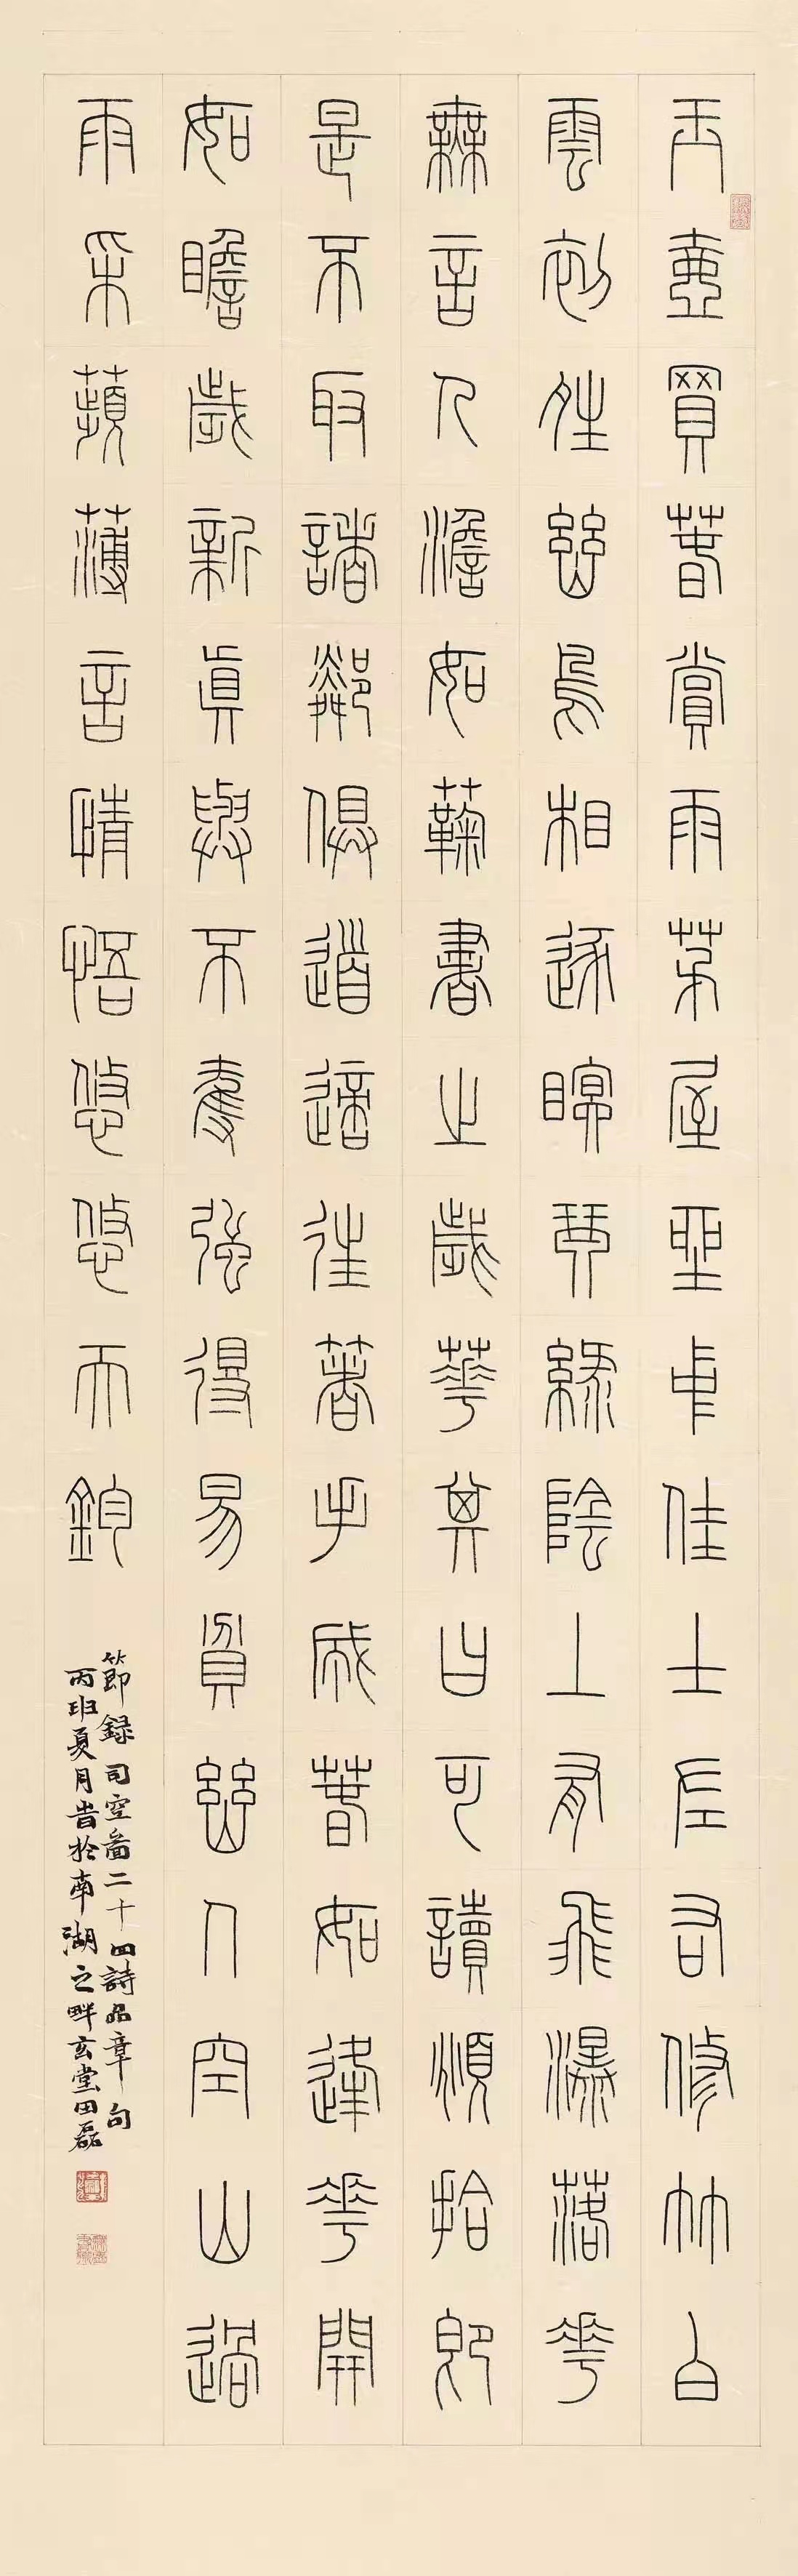 玉壺買春賞雨茅屋坐中佳士左右修竹白
雲初晴幽鳥相逐眠琴綠陰上有飛瀑落花
無言人澹如菊書之歲華其曰可讀頫拾即
是不取諸鄰俱道適往著手成春如逢花開
如瞻歲新真與不奪強得易貧幽人空山過
雨采蘋薄言情悟悠悠天鈞
節録司空圖二十四詩品章句
丙夏月書於南湖之畔玄堂田磊